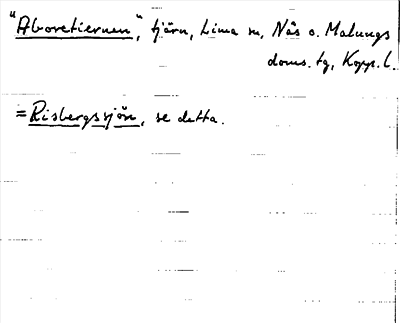 "Aborretiernen", tjärn, Lima sn, Nås o. Malungs
doms. tg, Kopp. l.
=Risbergssjön, se detta.